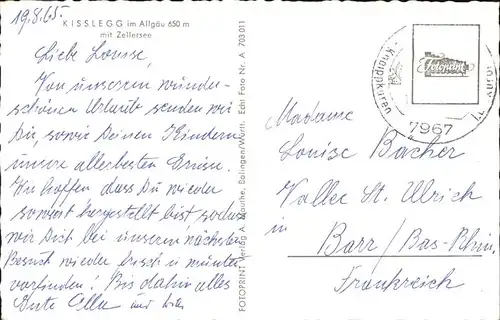 19.8.65.
KISSLEGG im Allgäu 650 m
mit Zellersee
Liebe Louise,
Von unserem wunder-
schönen Urlaub senden wir
Dir, sowie Deinen Kindern
unsere allerbesten Grüsse.
Wir hoffen dass Du wieder
soweit hergestellt bist, sodass
wir Dich bei unserem nächsten
Besuch wieder frisch u munter
vorfinden! Bis dahin alles
Gute Ella und
FOTOPRINT Verlag A. Mauthe, Balingen/Württ. Echt Foto Nr. A 703 011
Kneippkuren
7967
Madame
Louise Bacher
Vallee St. Ulrich
in
Barr/Bas-Rhin
Frankreich